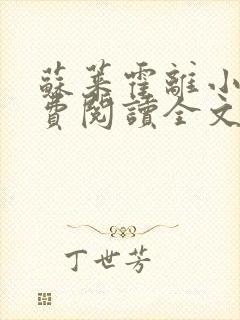 蘇萊霍離小
費閱讀全文
丁世芳